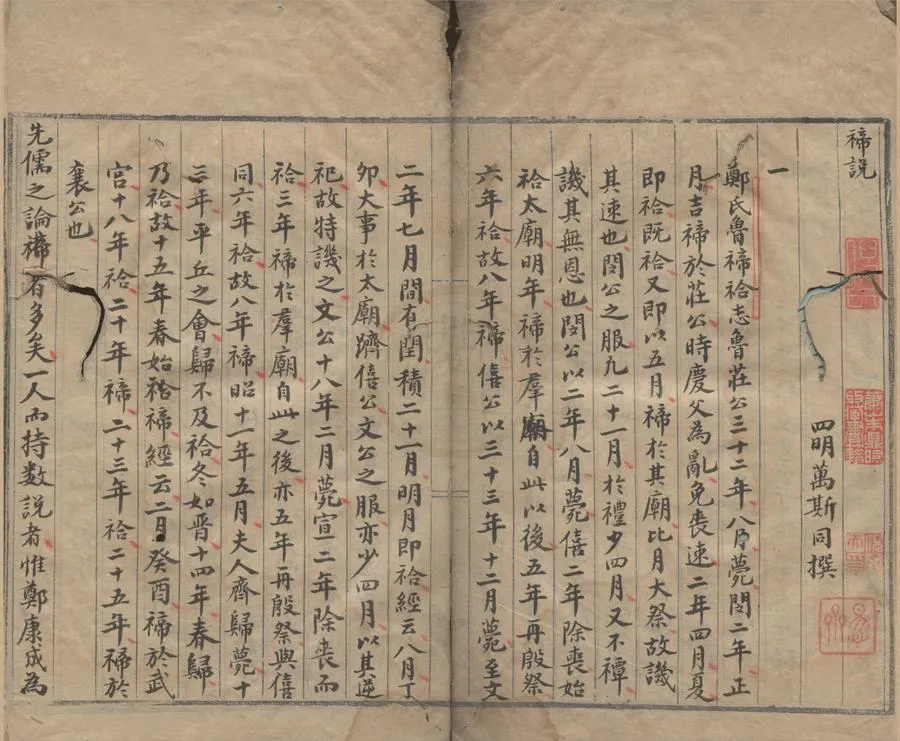 禘說
四明萬斯同撰
一
鄭氏魯禘祫志魯莊公三十二年八月薨閔二年正
月吉禘於莊公時慶父為亂免喪速二年四月夏
即祫既祫又即以五月禘於其廟比月大祭故譏
其速也閔公之服凡二十一月於禮少四月又不禫
譏其無恩也閔公以二年八月薨僖二年除喪始
祫太廟明年禘於羣廟自此以後五年再殷祭
六年祫故八年禘僖公以三十三年十二月薨至文
二年七月間有閏積二十一月明月即祫經云八月丁
卯大事於太廟躋僖公文公之服亦少四月以其逆
祀故特譏之文公十八年二月薨宣二年除喪而
祫三年禘於羣廟自此之後亦五年再殷祭與僖
同六年祫故八年禘昭十一年五月夫人齊歸薨十
三年平丘之會歸不及祫冬如晋十四年春歸
乃祫故十五年春始禘經云二月癸酉禘於武
宮十八年祫二十年禘二十三年祫二十五年禘於
襄公也
先儒之論禘者多矣一人而持数説者惟鄭康成為